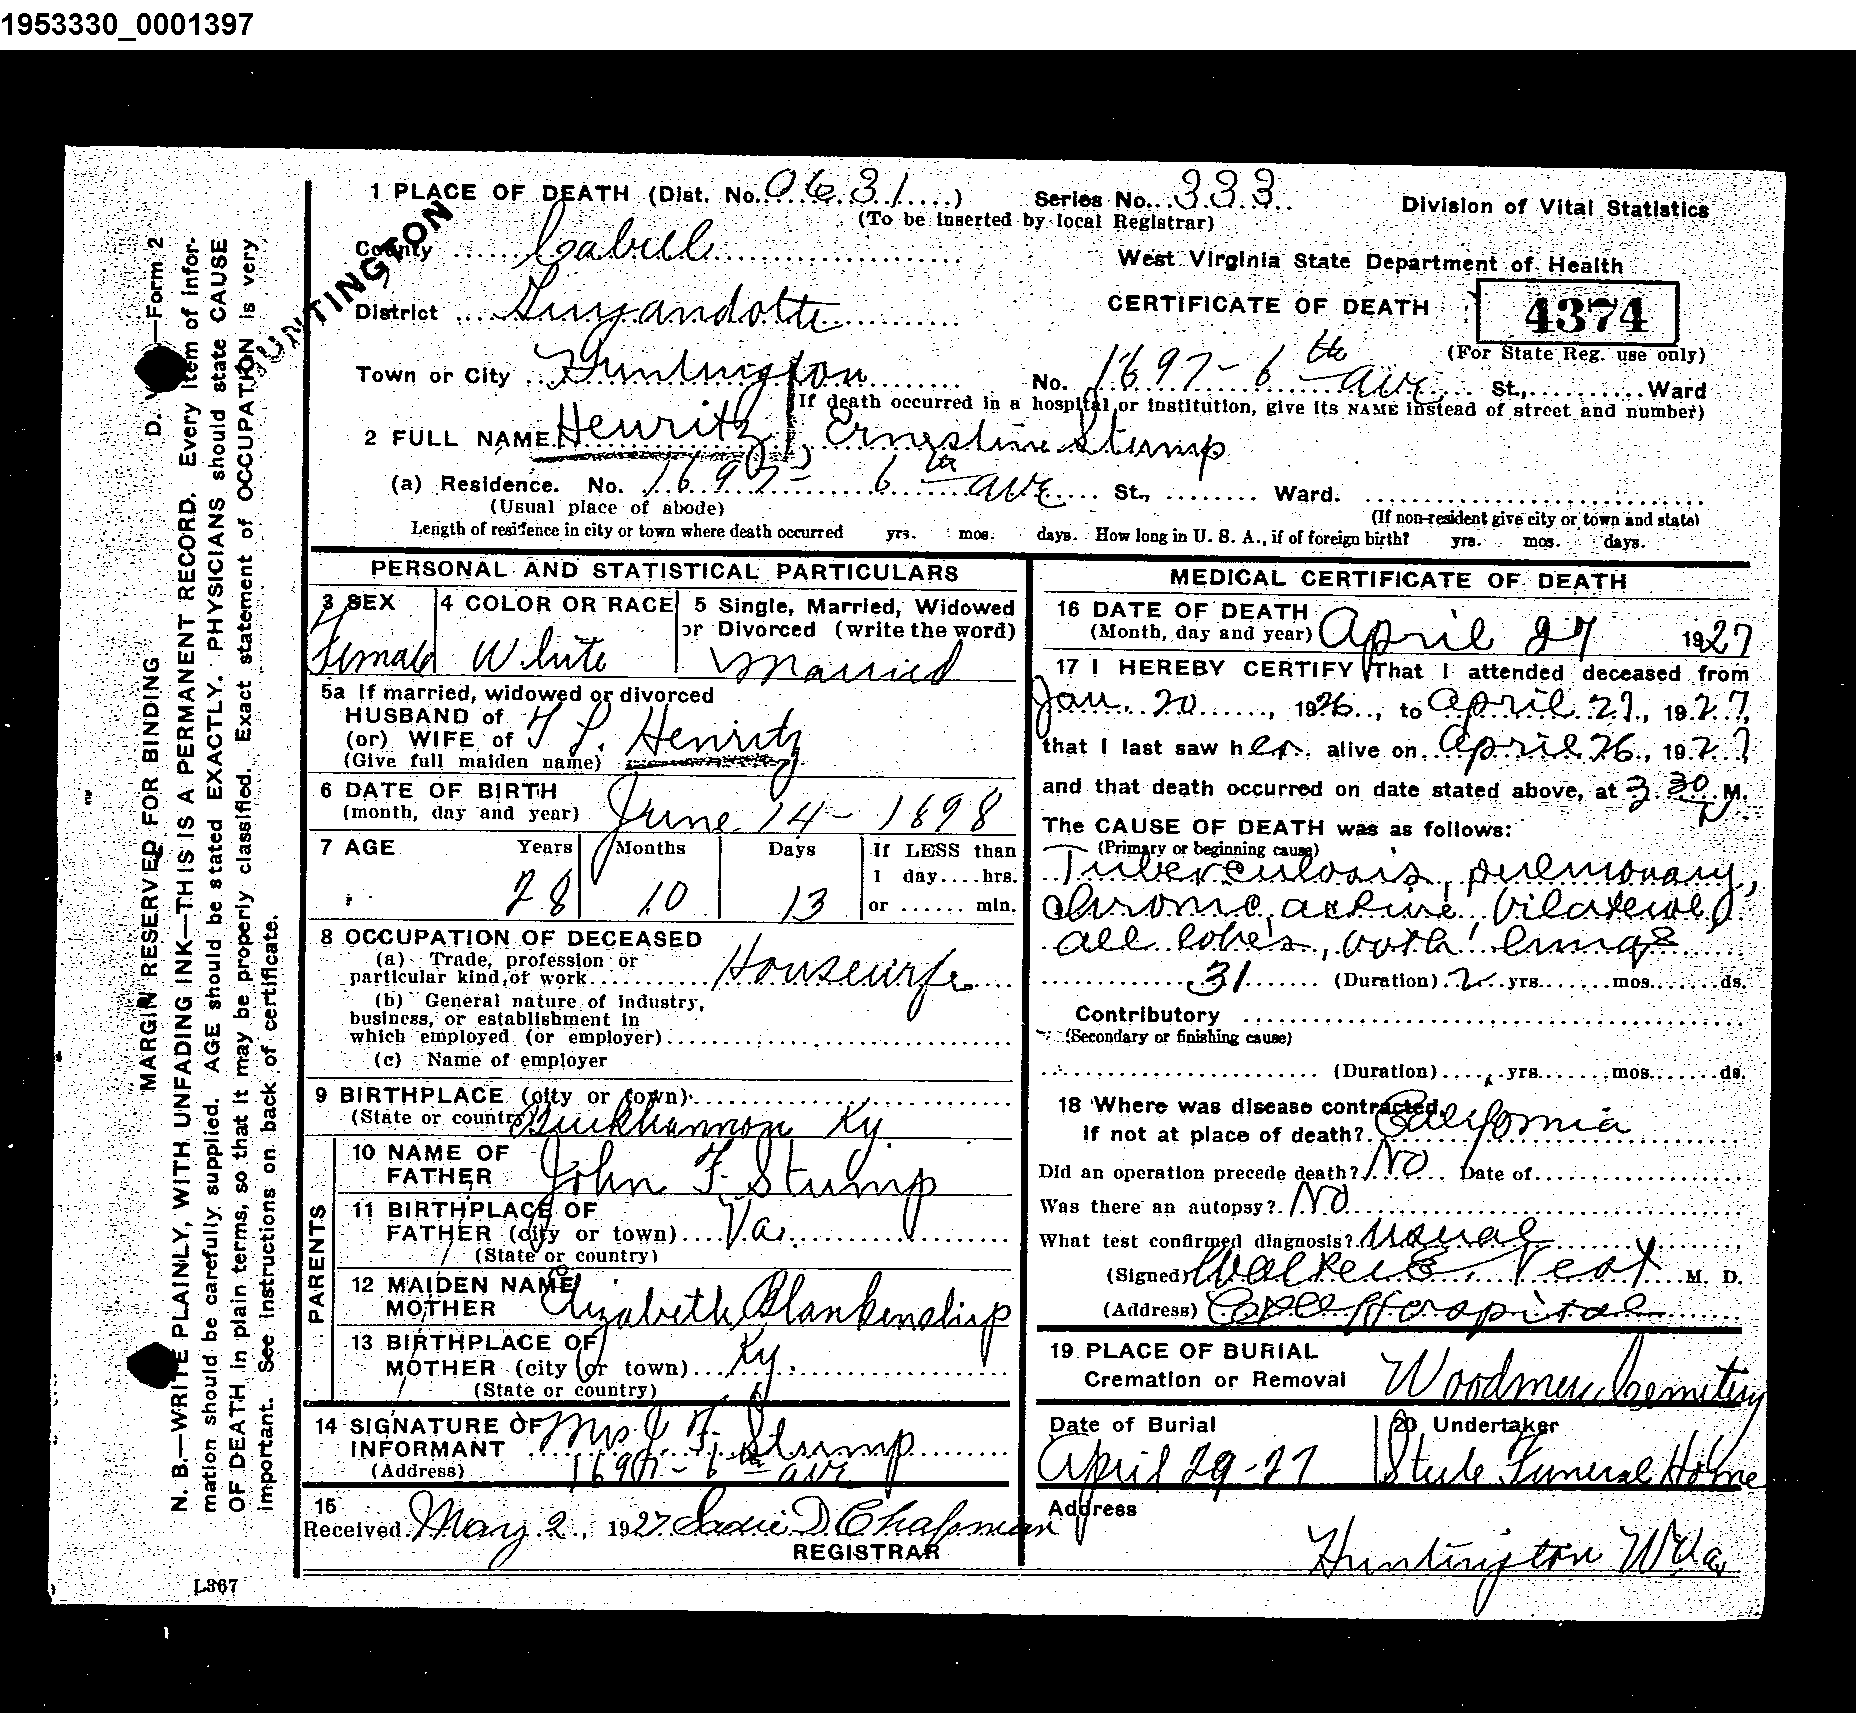 1953330_0001397
1 PLACE OF DEATH (Dist. No. 0631) Series No. 333 Division of Vital Statistics
(To be inserted by local Registrar)
HUNTINGTON
County Cabell
West Virginia State Department of Health
District Guyandotte
CERTIFICATE OF DEATH 4374
(For State Reg. use only)
Town or City Huntington No. 1697 - 6th ave St., Ward
If death occurred in a hospital or institution, give its NAME instead of street and number)
2 FULL NAME Henritz, Ernestine Stump
(a) Residence. No. 1697 - 6th ave St., Ward.
(Usual place of abode) (If non-resident give city or town and state)
Length of residence in city or town where death occurred yrs. mos. days. How long in U. S. A., if of foreign birth? yrs. mos. days.
PERSONAL AND STATISTICAL PARTICULARS
3 SEX 4 COLOR OR RACE 5 Single, Married, Widowed
or Divorced (write the word)
Female White Married
5a If married, widowed or divorced
HUSBAND of
(or) WIFE of Henritz
(Give full maiden name)
6 DATE OF BIRTH
(month, day and year) June 14 - 1898
7 AGE Years Months Days If LESS than
1 day....hrs.
28 10 13 or ...... min.
8 OCCUPATION OF DECEASED
(a) Trade, profession or
particular kind of work Housewife
(b) General nature of industry,
business, or establishment in
which employed (or employer)
(c) Name of employer
9 BIRTHPLACE (city or town)
(State or country) Buckhannon Ky.
PARENTS
10 NAME OF
FATHER John F. Stump
11 BIRTHPLACE OF
FATHER (city or town) Va.
(State or country)
12 MAIDEN NAME
MOTHER Elizabeth Blankenship
13 BIRTHPLACE OF
MOTHER (city or town) Ky.
(State or country)
14 SIGNATURE OF
INFORMANT Mrs J. F. Stump
(Address) 1697 - 6th ave
15
Received May 2, 1927 Sadie D. Chapman
REGISTRAR
MEDICAL CERTIFICATE OF DEATH
16 DATE OF DEATH
(Month, day and year) April 27 1927
17 I HEREBY CERTIFY That I attended deceased from
Jan. 20, 1926, to April 27, 1927,
that I last saw her alive on April 26, 1927
and that death occurred on date stated above, at 3:30 P. M.
The CAUSE OF DEATH was as follows:
(Primary or beginning cause)
Tuberculosis, pulmonary,
chronic, active bilateral
all lobes, both lungs
31 (Duration) 2 yrs. mos. ds.
Contributory
(Secondary or finishing cause)
(Duration) yrs. mos. ds.
18 Where was disease contracted
if not at place of death? California
Did an operation precede death? No Date of
Was there an autopsy? No
What test confirmed diagnosis? usual
(Signed) Walker E. Vest M. D.
(Address) C&O Hospital
19 PLACE OF BURIAL
Cremation or Removal Woodmere Cemetery
Date of Burial 20 Undertaker
April 29-27 Steele Funeral Home
Address
Huntington W Va
MARGIN RESERVED FOR BINDING D. V.—Form 2
N. B.—WRITE PLAINLY, WITH UNFADING INK—THIS IS A PERMANENT RECORD. Every item of infor-
mation should be carefully supplied. AGE should be stated EXACTLY. PHYSICIANS should state CAUSE
OF DEATH in plain terms, so that it may be properly classified. Exact statement of OCCUPATION is very
important. See instructions on back of certificate.
L367